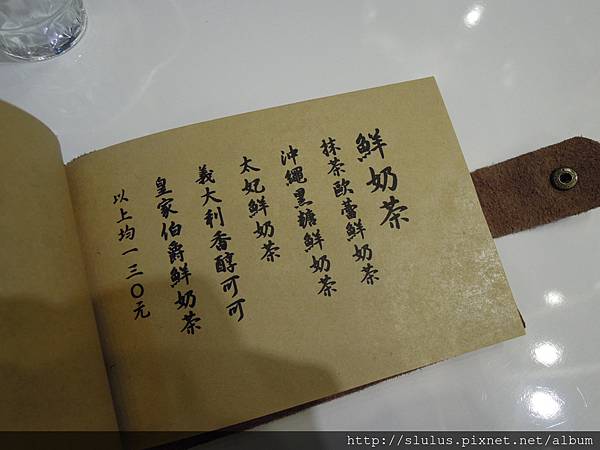 鮮奶茶
抹茶歐蕾鮮奶茶
沖繩黑糖鮮奶茶
太妃鮮奶茶
義大利香醇可可
皇家伯爵鮮奶茶
以上均一三〇元
http://slulus.pixnet.net/album